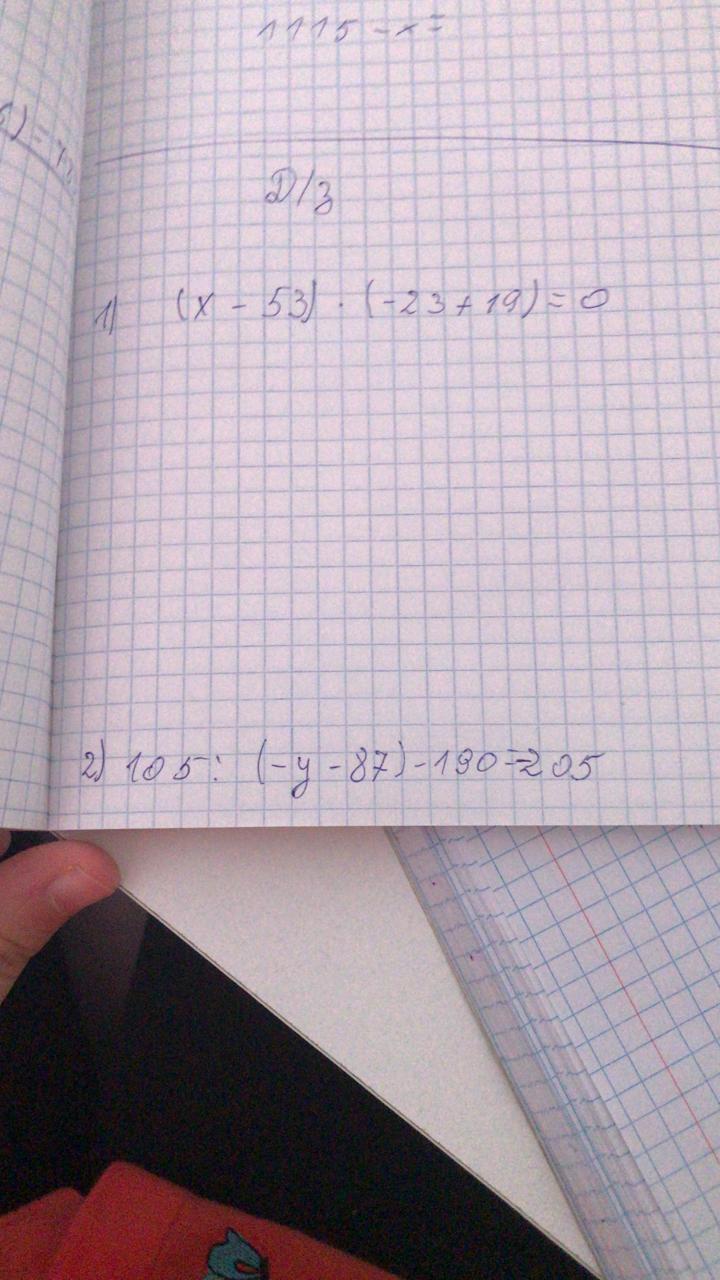 1115 - x =
Д/з
1) (x - 53) · (-23 + 19) = 0
2) 105 : (-y - 87) - 190 = -205